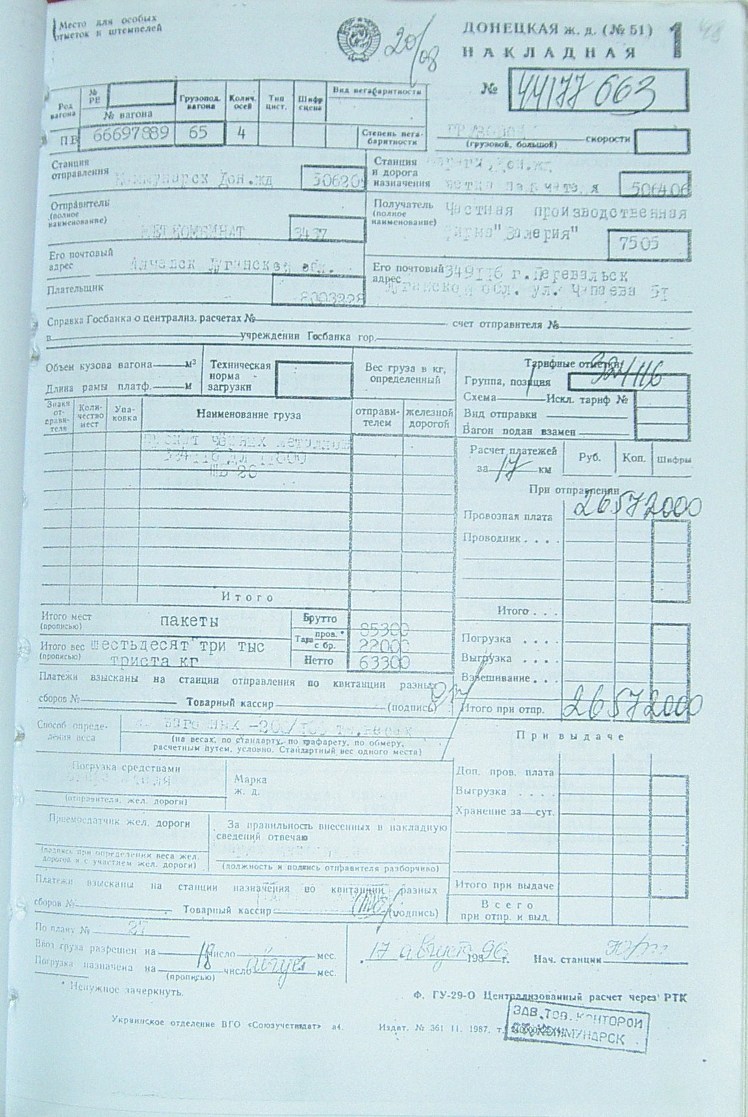 Место для особых
отметок и штемпелей
20/08
ДОНЕЦКАЯ ж. д. (№ 51)
НАКЛАДНАЯ
1
№ 44177663
Род вагона
№ РЕ
№ вагона
Грузопод. вагона
Колич. осей
Тип цист.
Шифр сцепа
Вид негабаритности
Степень негабаритности
ПВ 66697889 65 4
(грузовой, большой) скорости
Станция отправления
Коммунарск Дон.жд
Станция и дорога назначения
506406
Отправитель (полное наименование)
МЕТКОМБИНАТ 3437
Получатель (полное наименование)
Частная производственная
фирма "Валерия" 7505
Его почтовый адрес
Алчевск Луганская обл.
Его почтовый адрес
349116 г.Перевальск
Луганской обл. ул. Чапаева
Плательщик
Справка Госбанка о централиз. расчетах № счет отправителя №
в учреждении Госбанка гор.
Объем кузова вагона м³
Длина рамы платф. м
Техническая норма загрузки
Вес груза в кг, определенный
Тарифные отметки
Группа, позиция 324116
Схема Искл. тариф №
Вид отправки
Вагон подан взамен
Знаки отправителя
Количество мест
Упаковка
Наименование груза
отправителем
железной дорогой
черных металлов
Расчет платежей
за 17 км
Руб. Коп. Шифры
При отправлении
Провозная плата 26572000
Проводник . . . .
Итого
Итого . . .
Итого мест (прописью) пакеты
Брутто 85300
Тара пров.* с бр. 22000
Итого вес (прописью) шестьдесят три тыс
триста кг
Нетто 63300
Погрузка . . . .
Выгрузка . . . .
Взвешивание . . .
Платежи взысканы на станции отправления по квитанции разных
сборов № Товарный кассир (подпись)
Итого при отпр. 26572000
Способ определения веса
(на весах, по стандарту, по трафарету, по обмеру,
расчетным путем, условно. Стандартный вес одного места)
При выдаче
Погрузка средствами
(отправителя, жел. дороги)
Марка ж. д.
Доп. пров. плата
Выгрузка . . . .
Хранение за сут.
Приемосдатчик жел. дороги
(подпись при определении веса жел.
дорогой и с участием жел. дороги)
За правильность внесенных в накладную
сведений отвечаю
(должность и подпись отправителя разборчиво)
Платежи взысканы на станции назначения по квитанции разных
сборов № Товарный кассир (подпись)
Итого при выдаче
Всего
при отпр. и выд.
По плану № 27
Ввоз груза разрешен на 18 число августа мес.
Погрузка назначена на число мес.
(прописью)
17 августа 1996 г. Нач. станции
* Ненужное зачеркнуть.
Ф. ГУ-29-О Централизованный расчет через РТК
Украинское отделение ВГО «Союзучетиздат» Издат. № 361 11. 1987. т.
ЗАВ. ТОВ. КОНТОРОЙ
СТ. КОММУНАРСК